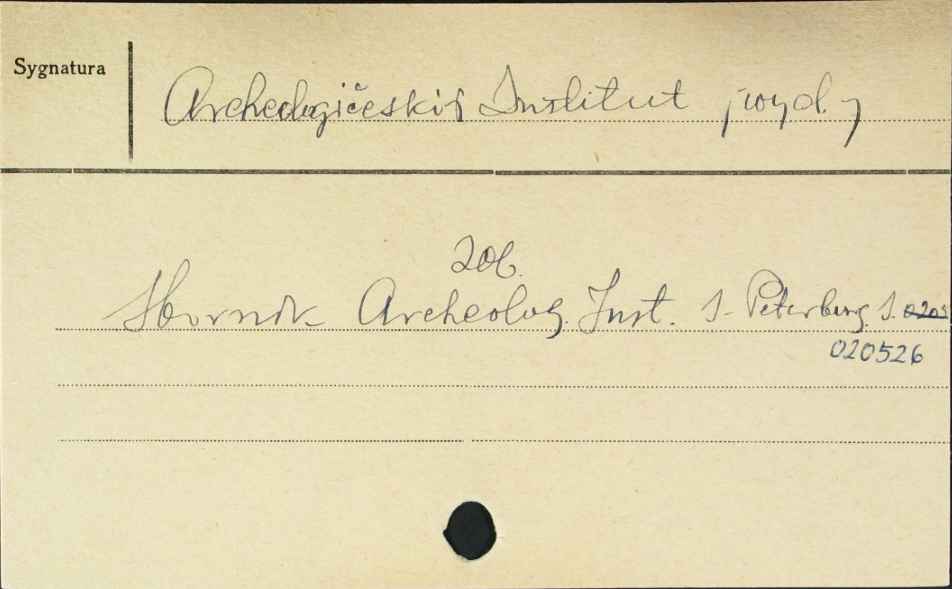 Sygnatura
Archeologičeskij Institut /wyd./
zob.
Sbornik Archeolog. Inst. S-Peterburg. S. 0205
020526